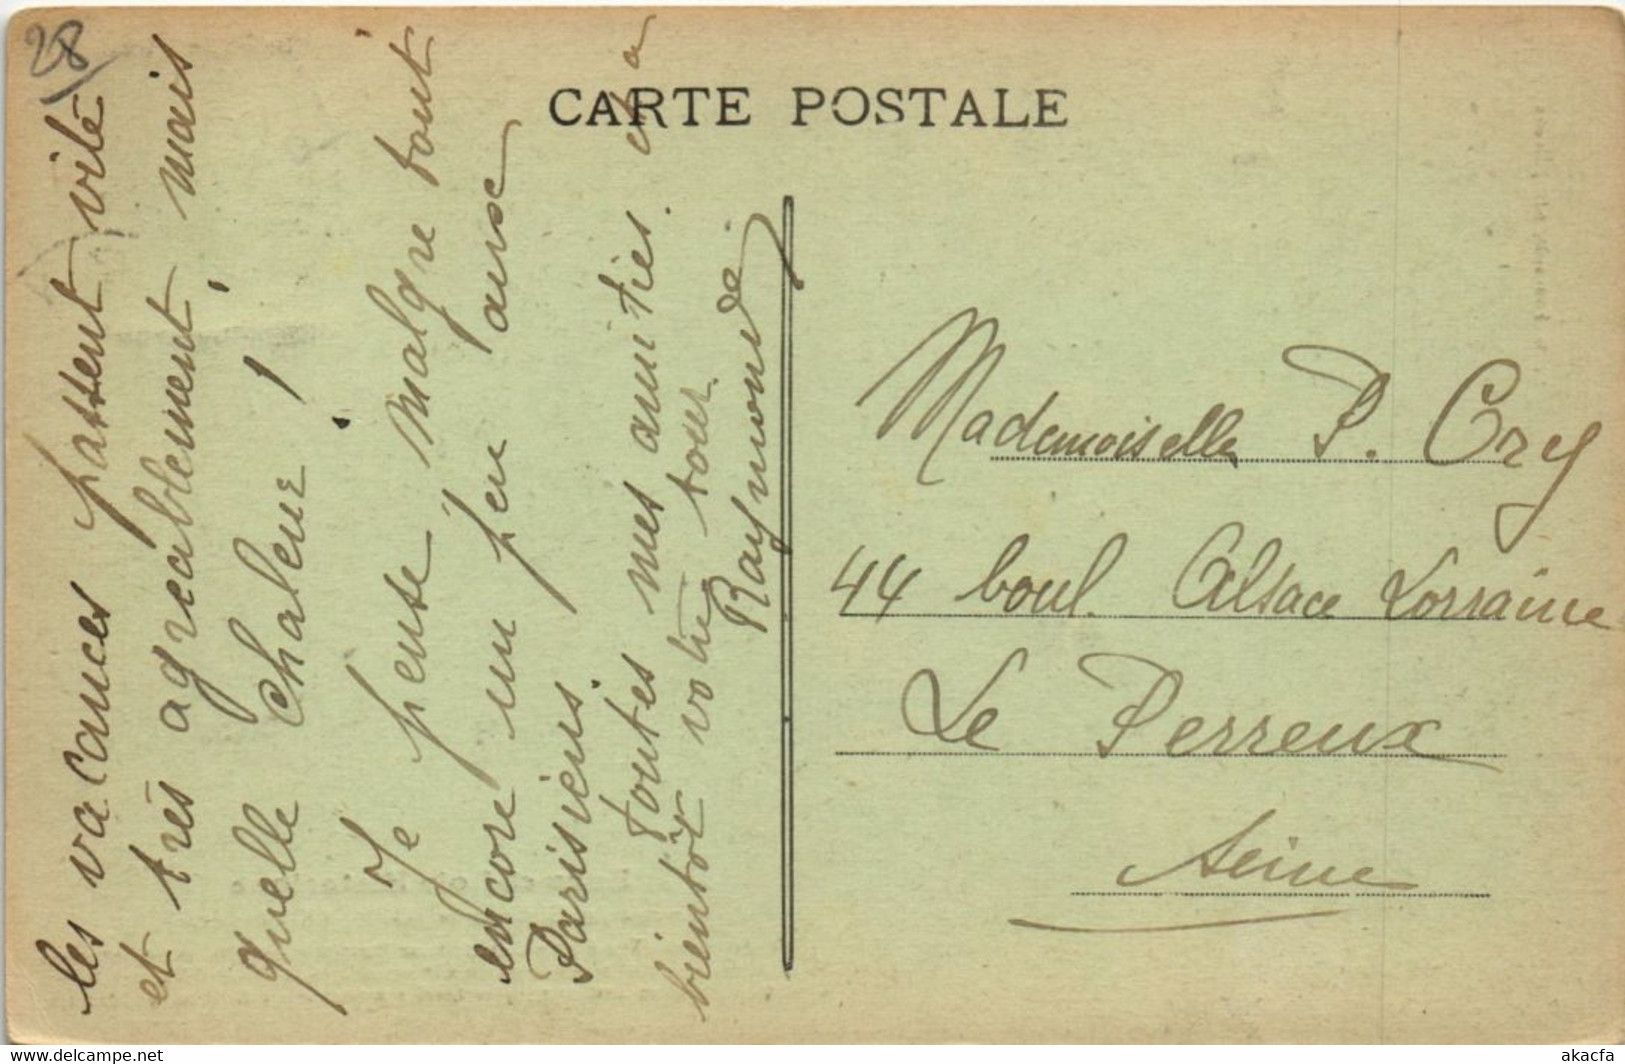 28
CARTE POSTALE
les vacances passent vite
et très agréablement, mais
quelle chaleur !
Je pense malgre tout
encore un peu
Parisiens.
toutes mes amities et a
bientôt votre tour
Raymonde
Mademoiselle P. Cry
44 boul. Alsace Lorraine
Le Perreux
Seine
akacfa